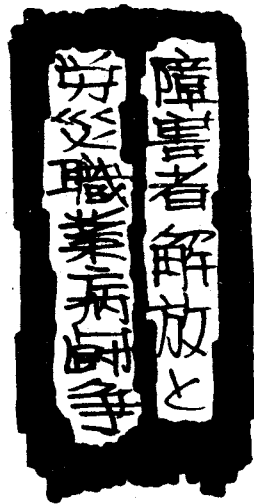 障害者解放と
労災職業病斗争